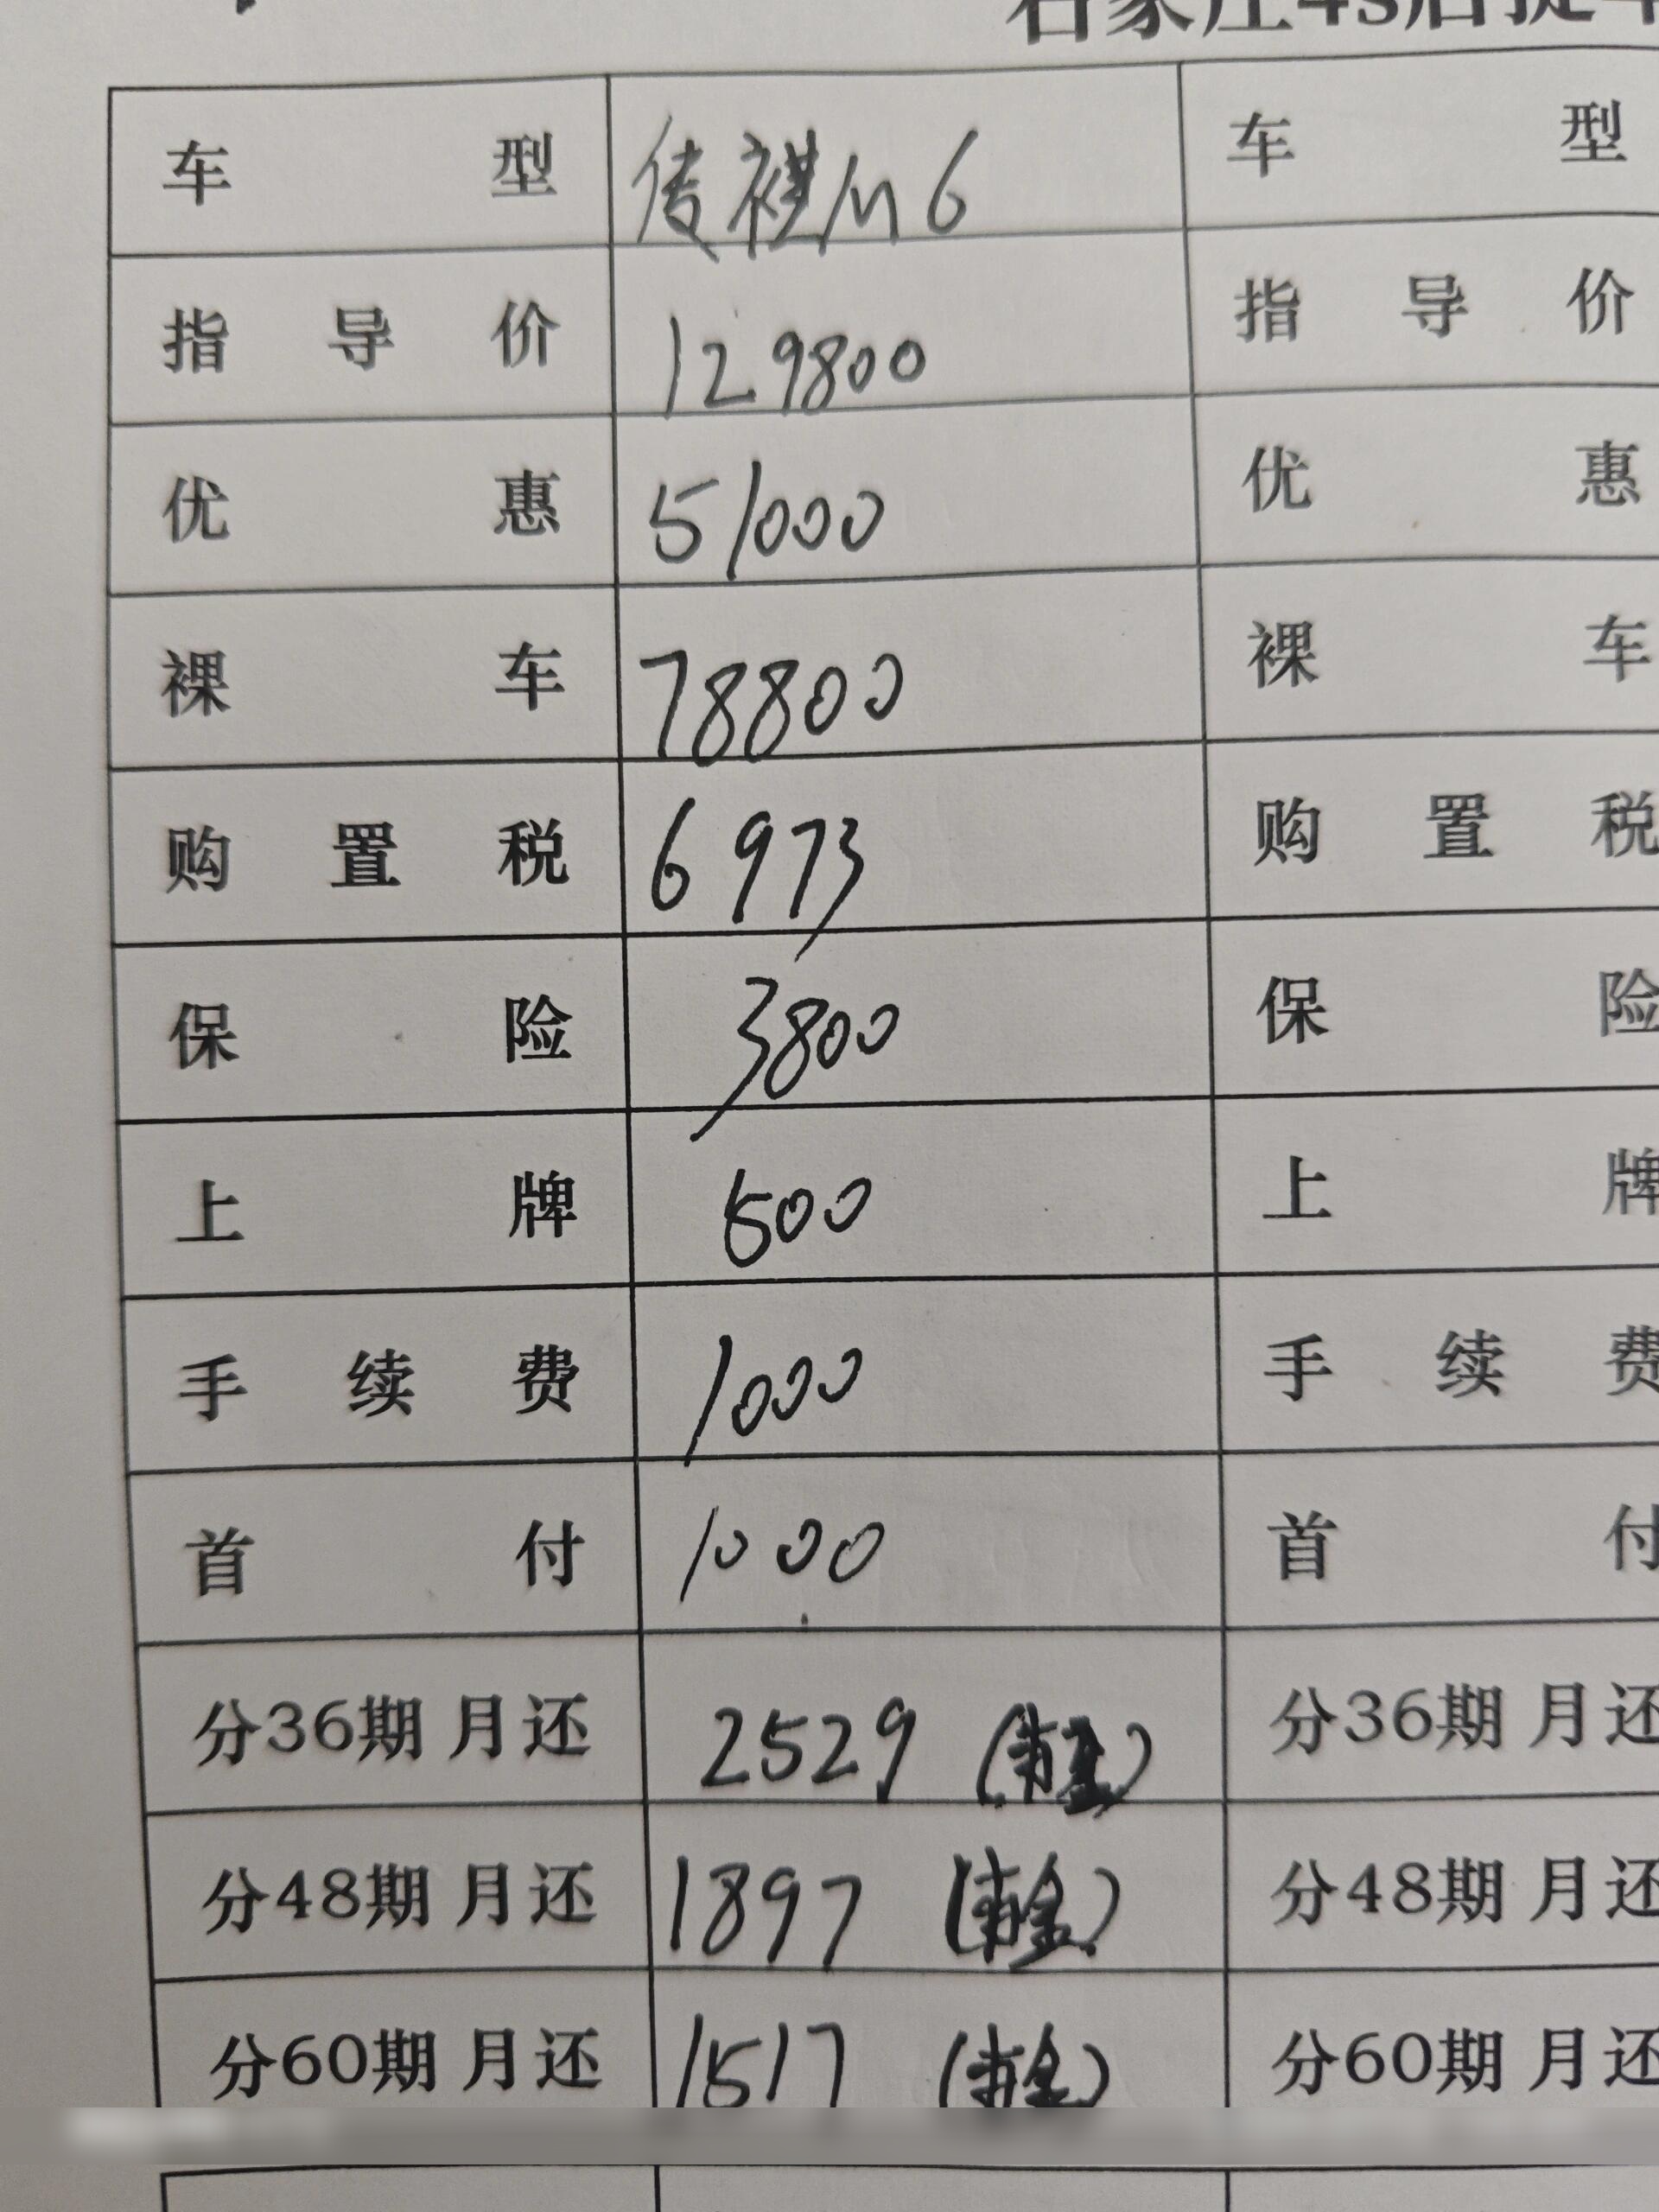 石家庄4s店提车
车型 传祺M6 车型
指导价 129800 指导价
优惠 51000 优惠
裸车 78800 裸车
购置税 6973 购置税
保险 3800 保险
上牌 500 上牌
手续费 1000 手续费
首付 1000 首付
分36期月还 2529 (本金) 分36期月还
分48期月还 1897 (本金) 分48期月还
分60期月还 1517 (本金) 分60期月还